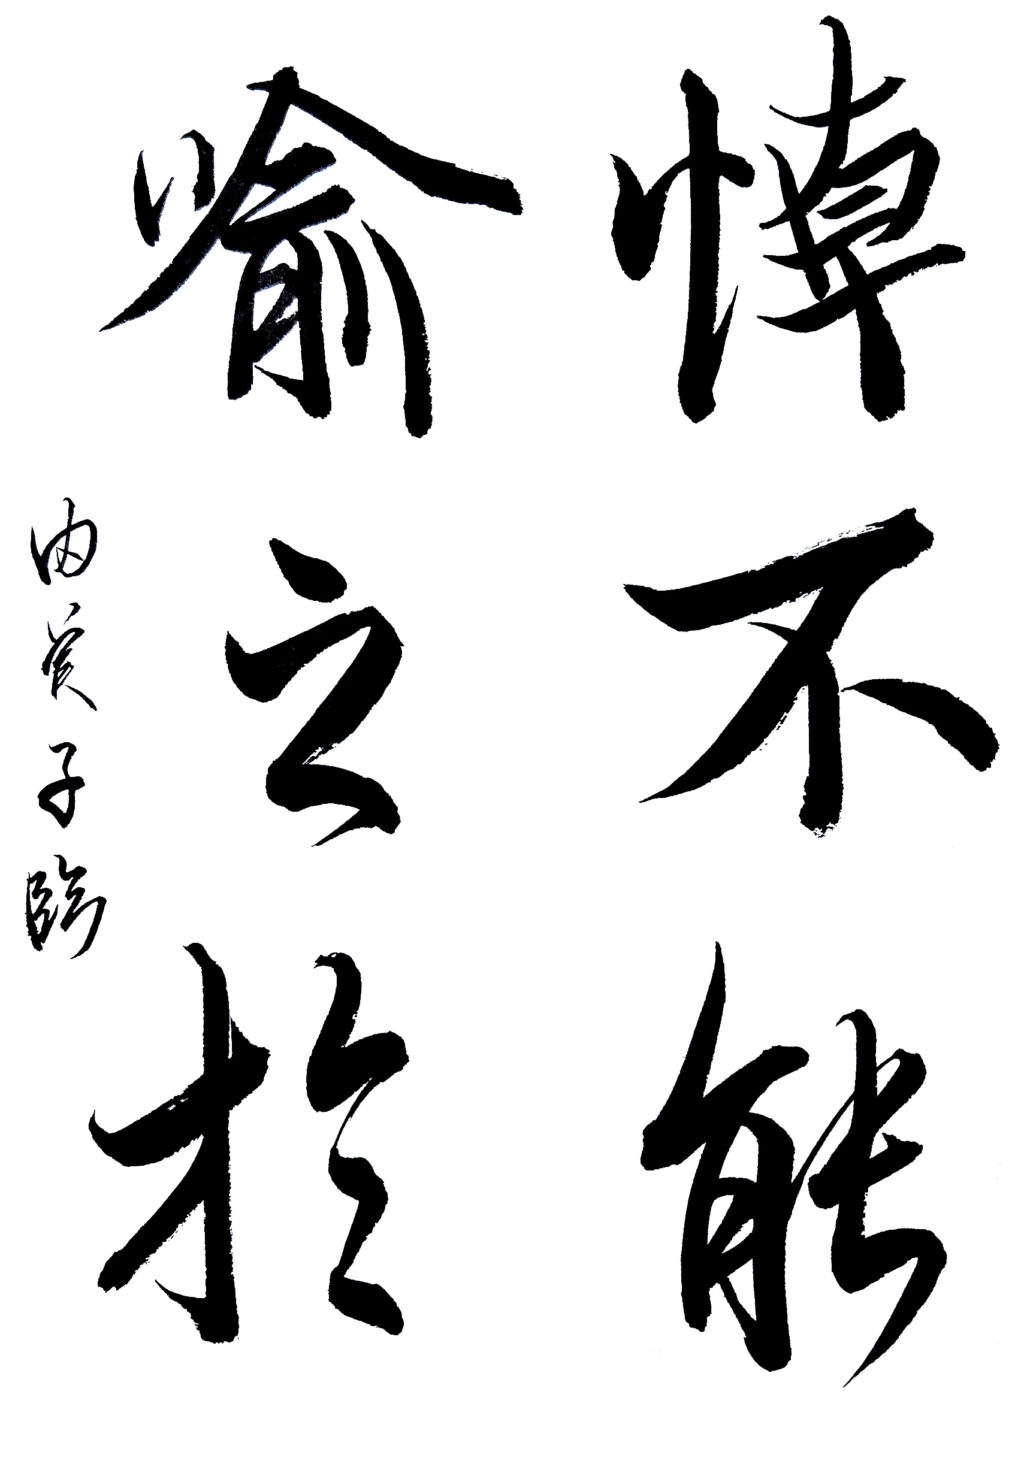 悼不能
喻之於
由美子臨